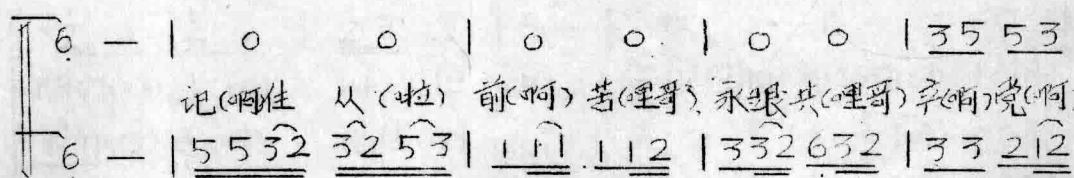 6 — | 0 0 | 0 0 | 0 0 | 35 53
记(啊)住 从(啦) 前(啊) 苦(哩哥), 永跟共(哩哥) 产(啊)党(啊)
6 — | 5532 3253 | 111 112 | 332 632 | 33 212